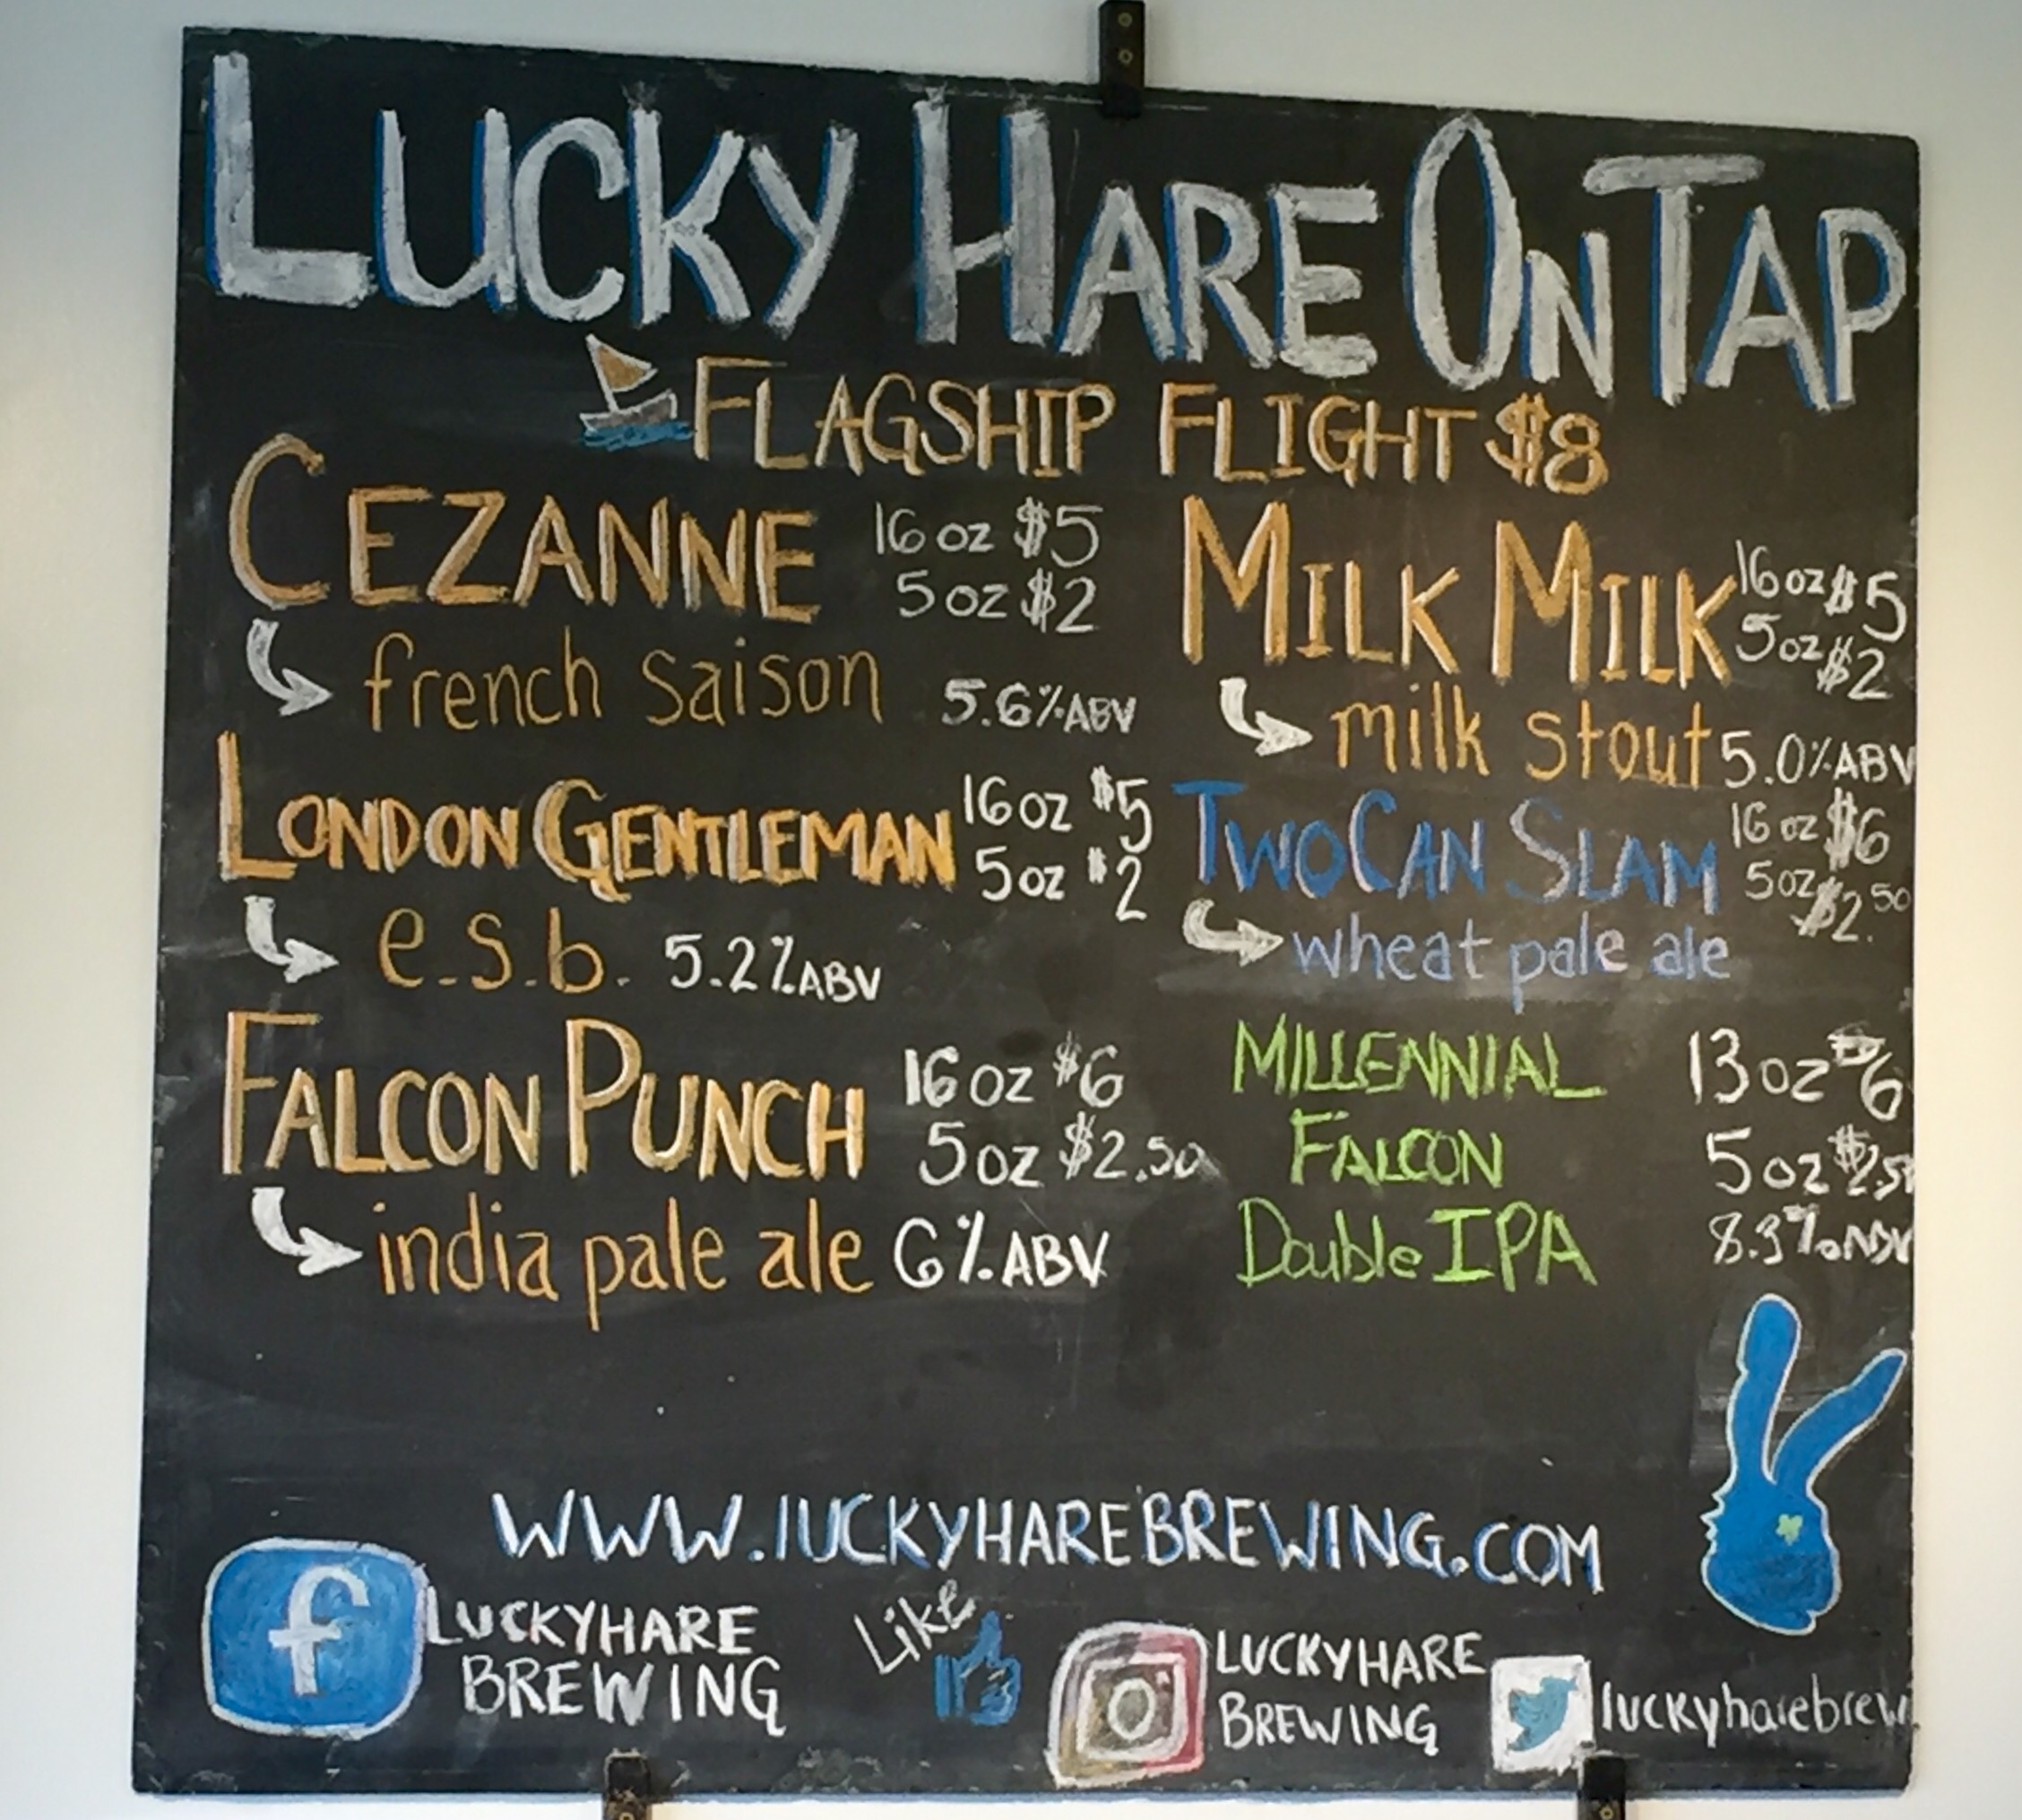 LUCKY HARE ON TAP
FLAGSHIP FLIGHT $8
CEZANNE 16 oz $5
5 oz $2
french saison 5.6% ABV
LONDON GENTLEMAN 16 oz $5
5 oz $2
e.s.b. 5.2% ABV
FALCON PUNCH 16 oz $6
5 oz $2.50
india pale ale 6% ABV
MILK MILK 16 oz $5
5 oz $2
milk stout 5.0% ABV
TWO CAN SLAM 16 oz $6
5 oz $2.50
wheat pale ale
MILLENNIAL 13 oz $6
FALCON 5 oz $2.50
Double IPA 8.3% ABV
WWW.lUCKYHAREBREWING.COM
f LUCKYHARE
BREWING
Like
LUCKYHARE
BREWING
luckyharebrew